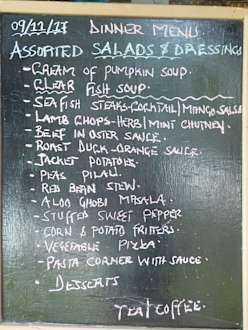 09/11/17 DINNER MENU
ASSORTED SALADS & DRESSINGS
- CREAM OF PUMPKIN SOUP.
- CLEAR FISH SOUP.
- SEAFISH STEAKS-COCKTAIL/MANGO SALSA
- LAMB CHOPS-HERB/MINT CHUTNEY.
- BEEF IN OSTER SAUCE.
- ROAST DUCK-ORANGE SAUCE.
- JACKET POTATOES.
- PEAS PILAU.
- RED BEAN STEW.
- ALOO GHOBI MASALA.
- STUFFED SWEET PEPPER
- CORN & POTATO FRITTERS.
- VEGETABLE PIZZA.
- PASTA CORNER WITH SAUCE.
- DESSERTS
TEA/COFFEE.